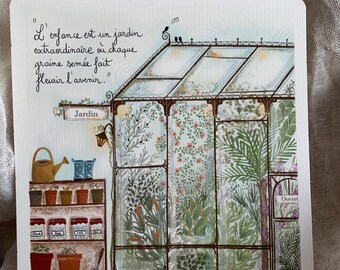 "L'enfance est un jardin
extraordinaire où chaque
graine semée fait
fleurir l'avenir."
Jardin
Ouvert